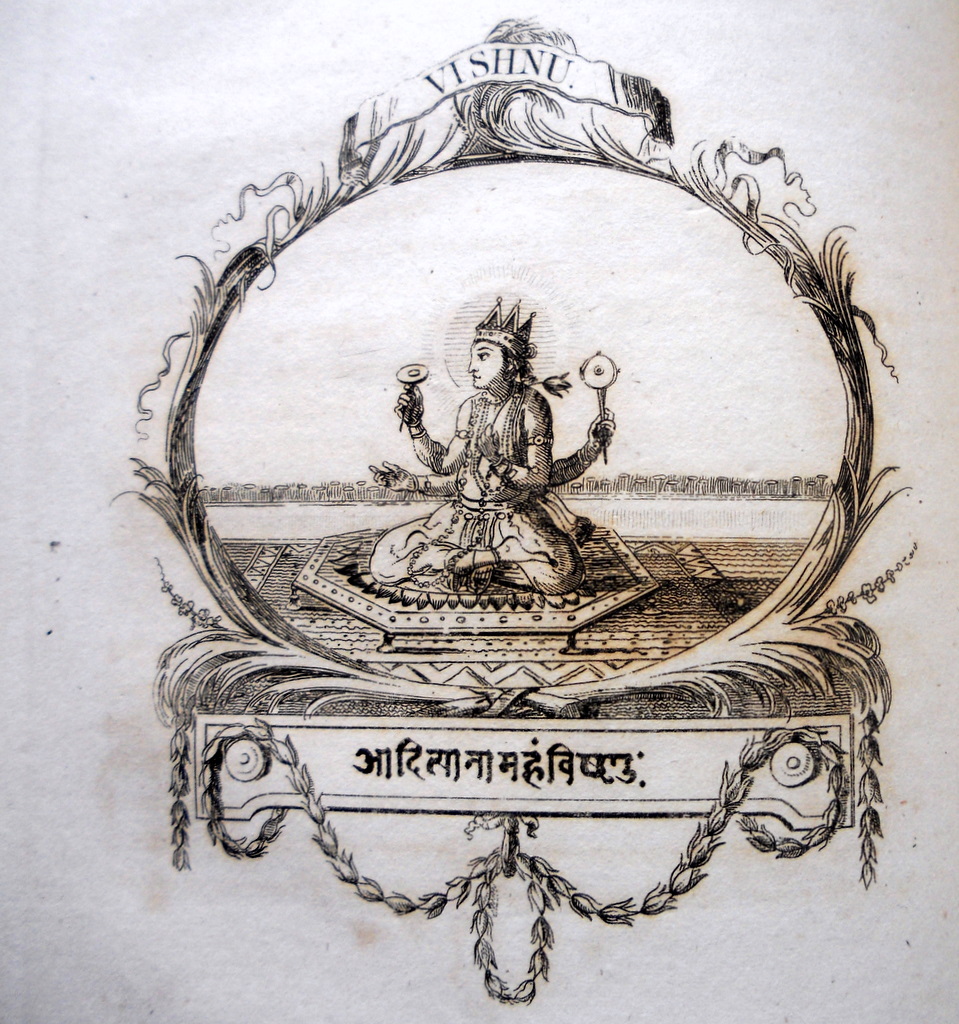 VISHNU.
आदित्यानामहंविष्णुः